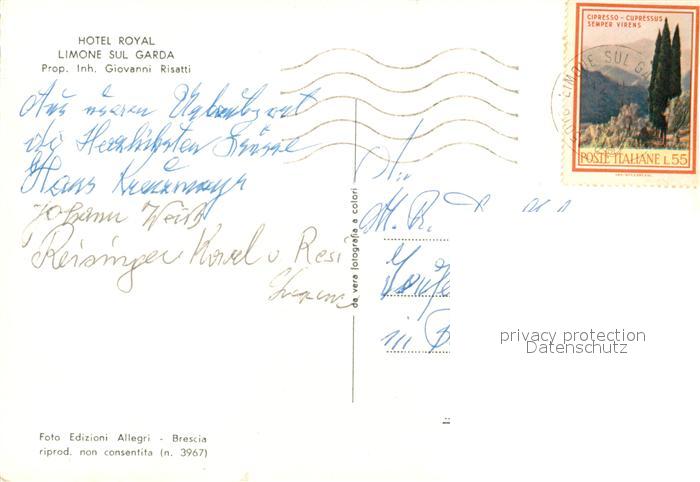 HOTEL ROYAL
LIMONE SUL GARDA
Prop. Inh. Giovanni Risatti
Aus unseren Urlaubsort
die Herzlichsten Grüsse
Hans
Johann Weiß
Reisinger Karl u Resi
da vera fotografia a colori
An
in
CIPRESSO - CUPRESSUS
SEMPER VIRENS
LIMONE SUL GA
POSTE ITALIANE L. 55
privacy protection
Datenschutz
Foto Edizioni Allegri - Brescia
riprod. non consentita (n. 3967)